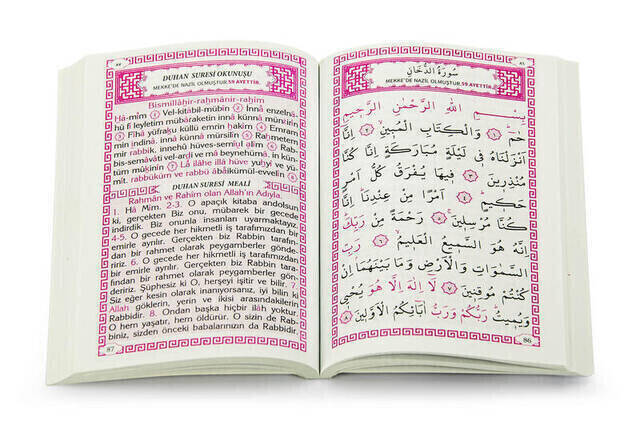 DUHAN SURESİ OKUNUŞU
MEKKE'DE NAZİL OLMUŞTUR, 59 AYETTİR.
Bismillâhir-rahmânir-rahîm
Hâ-mîm 1 Vel-kitâbil-mübin 2 İnnâ enzelnâ-
hü fî leyletim mübâraketin innâ künnâ münzirîn
3 Fîhâ yüfraku küllü emrin hakîm 4 Emram
min ındinâ, innâ künnâ mürsilîn 5 Rahmetem
mir rabbik, innehû hüves-semîul alîm 6 Rab-
bis-semâvâti vel-ardı ve mâ beynehümâ, in kün-
tüm mûkınîn 7 Lâ ilâhe illâ hüve yuhyî ve yü-
mît, rabbüküm ve rabbü âbâikümül-evvelîn 8
DUHAN SURESİ MEALİ
Rahmân ve Rahîm olan Allah'ın Adıyla.
1. Hâ Mim. 2-3. O apaçık kitaba andolsun
ki, gerçekten Biz onu, mübarek bir gecede
indirdik. Biz onunla insanları uyarmaktayız.
4-5. O gecede her hikmetli iş tarafımızdan bir
emirle ayrılır. Gerçekten biz Rabbin tarafın-
dan bir rahmet olarak peygamberler gönde-
ririz. 6. O gecede her hikmetli iş tarafımızdan
bir emirle ayrılır. Gerçekten biz Rabbin tara-
fından bir rahmet olarak peygamberler gön-
deririz. Şüphesiz ki O, herşeyi işitir ve bilir. 7.
Siz eğer kesin olarak inanıyorsanız, iyi bilin ki
Allah göklerin, yerin ve ikisi arasındakilerin
Rabbidir. 8. Ondan başka hiçbir ilâh yoktur.
O hem yaşatır, hem öldürür. O sizin de Rab-
biniz, sizden önceki babalarınızın da Rabbidir.
87
سُورَةُ الدُّخَانِ
MEKKE'DE NAZİL OLMUŞTUR, 59 AYETTİR.
بِسْمِ اللهِ الرَّحْمٰنِ الرَّحِيمِ
حٰمٓ ١ وَالْكِتَابِ الْمُبِينِ ٢ اِنَّٓا
اَنْزَلْنَاهُ فِى لَيْلَةٍ مُبَارَكَةٍ اِنَّا كُنَّا
مُنْذِرِينَ ٣ فِيهَا يُفْرَقُ كُلُّ اَمْرٍ
حَكِيمٍ ٤ اَمْرًا مِنْ عِنْدِنَا اِنَّا
كُنَّا مُرْسِلِينَ ٥ رَحْمَةً مِنْ رَبِّكَ
اِنَّهُ هُوَ السَّمِيعُ الْعَلِيمُ ٦ رَبِّ
السَّمٰوَاتِ وَالْاَرْضِ وَمَا بَيْنَهُمَا اِنْ
كُنْتُمْ مُوقِنِينَ ٧ لَٓا اِلٰهَ اِلَّا هُوَ يُحْيِى
وَيُمِيتُ رَبُّكُمْ وَرَبُّ اٰبَٓائِكُمُ الْاَوَّلِينَ ٨
86